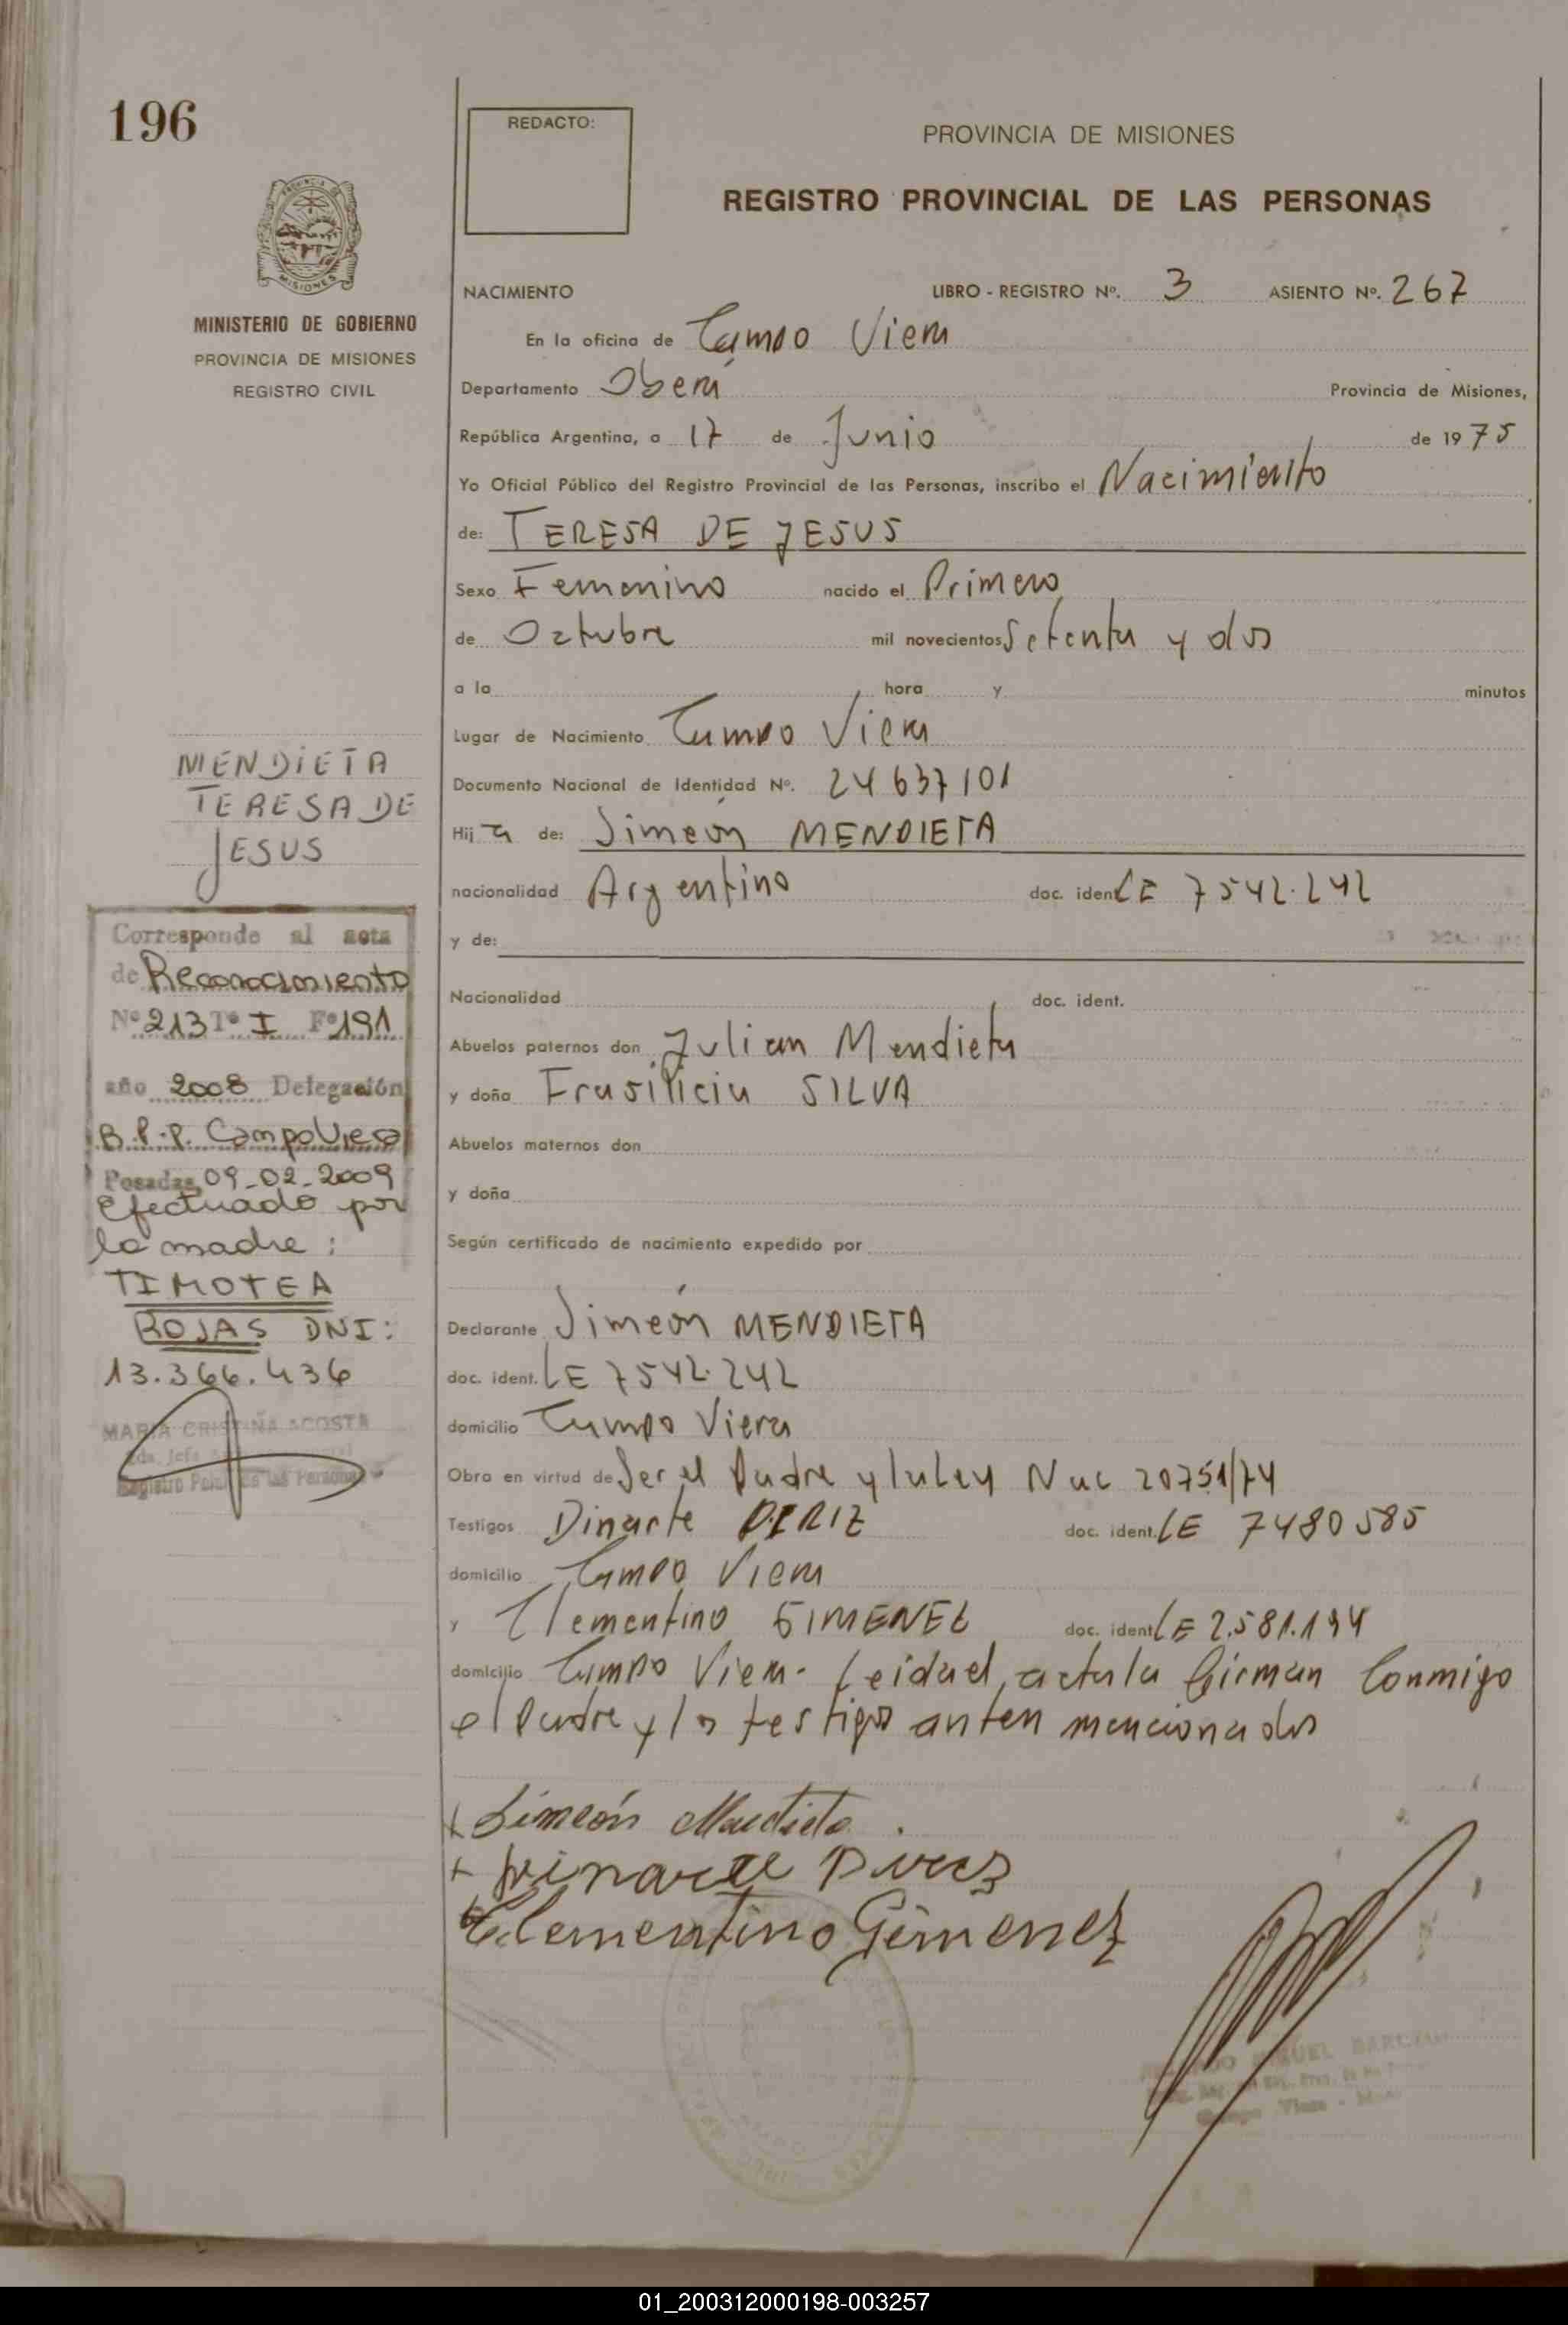 196
REDACTO:
PROVINCIA DE MISIONES
REGISTRO PROVINCIAL DE LAS PERSONAS
MINISTERIO DE GOBIERNO
PROVINCIA DE MISIONES
REGISTRO CIVIL
NACIMIENTO LIBRO - REGISTRO Nº. 3 ASIENTO Nº. 267
En la oficina de Campo Viera
Departamento Oberá Provincia de Misiones,
República Argentina, a 17 de Junio de 1975
Yo Oficial Público del Registro Provincial de las Personas, inscribo el Nacimiento
de: TERESA DE JESUS
Sexo Femenino nacido el Primero
de Octubre mil novecientos Setenta y dos
a la hora y minutos
Lugar de Nacimiento Campo Viera
Documento Nacional de Identidad Nº. 24637101
Hija de: Simeón MENDIETA
nacionalidad Argentino doc. ident LE 7542.242
y de:
Nacionalidad doc. ident.
Abuelos paternos don Julian Mendieta
y doña SILVA
Abuelos maternos don
y doña
Según certificado de nacimiento expedido por
Declarante Simeón MENDIETA
doc. ident. LE 7542.242
domicilio Campo Viera
Obra en virtud de Ser el Padre y la Ley Nac 20751/74
Testigos Dinarte doc. ident. LE 7480585
domicilio Campo Viera
y Clementino GIMENEZ doc. ident LE 2.581.194
domicilio Campo Viera. Leida el acta la firman Conmigo
el Padre y los testigos antes mencionados
Simeón Mendieta
Dinarte
Clementino Gimenez
MENDIETA
TERESA DE
JESUS
Corresponde al acta
de Reconocimiento
Nº 213 Tº I Fº 191
año 2008 Delegación
B.P.P. Campo Viera
Posadas, 09-02-2009
Efectuado por
la madre:
TIMOTEA
ROJAS DNI:
13.366.436
MARIA CRISTINA ACOSTA
Registro Pcial. de las Personas
01_200312000198-003257